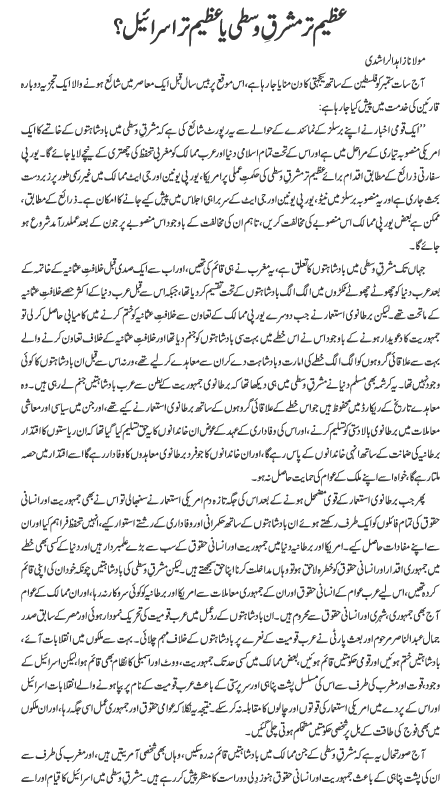 عظیم تر مشرقِ وسطی یا عظیم تر اسرائیل؟
مولانا زاہد الراشدی
آج سات ستمبر کو فلسطین کے ساتھ یکجہتی کا دن منایا جا رہا ہے، اس موقع پر بیس سال قبل ایک معاصر میں شائع ہونے والا ایک تجزیہ دوبارہ
قارئین کی خدمت میں پیش کیا جا رہا ہے:
’’ایک قومی اخبار نے اپنے برسلز کے نمائندے کے حوالے سے یہ رپورٹ شائع کی ہے کہ مشرق وسطیٰ میں بادشاہتوں کے خاتمے کا ایک
امریکی منصوبہ تیاری کے مراحل میں ہے اور اس کے تحت تمام اسلامی دنیا اور عرب ممالک کو مغربی تحفظ کی چھتری کے نیچے لایا جائے گا۔ یورپی
سفارتی ذرائع کے مطابق اقدام برائے عظیم تر مشرق وسطیٰ کی حکمت عملی پر امریکا، یورپی یونین اور جی ایٹ ممالک میں غیر رسمی طور پر زبردست
بحث جاری ہے اور یہ منصوبہ برسلز میں نیٹو، یورپی یونین اور جی ایٹ کے سربراہی اجلاس میں پیش کیے جانے کا امکان ہے۔ ذرائع کے مطابق،
ممکن ہے بعض یورپی ممالک اس منصوبے کی مخالفت کریں، تاہم ان کی مخالفت کے باوجود اس منصوبے پر جون کے بعد عملدرآمد شروع ہو
جائے گا۔
جہاں تک مشرق وسطیٰ میں بادشاہتوں کا تعلق ہے، یہ مغرب نے ہی قائم کی تھیں، اور اب سے ایک صدی قبل خلافتِ عثمانیہ کے خاتمہ کے
بعد عرب دنیا کو چھوٹے چھوٹے ٹکڑوں میں الگ الگ بادشاہتوں کے تحت تقسیم کر دیا تھا، جبکہ اس سے قبل عرب دنیا کے اکثر حصے خلافتِ عثمانیہ
کے ماتحت تھے۔ لیکن برطانوی استعمار نے جب دوسرے یورپی ممالک کے تعاون سے خلافتِ عثمانیہ کو ختم کرنے میں کامیابی حاصل کر لی تو
جمہوریت کا دعویدار ہونے کے باوجود اس نے اس خطے میں بہت سی بادشاہتوں کو جنم دیا تھا اور خلافتِ عثمانیہ کے خلاف تعاون کرنے والے
بہت سے علاقائی گروہوں کو الگ الگ خطے کی امارت و بادشاہت دے کر ان سے معاہدے کر لیے تھے، ورنہ اس سے قبل ان بادشاہتوں کا کوئی
وجود نہیں تھا۔ یہ کرشمہ بھی مسلم دنیا نے مشرق وسطیٰ میں ہی دیکھا تھا کہ برطانوی جمہوریت کے بطن سے عرب بادشاہتیں جنم لے رہی ہیں۔ وہ
معاہدے تاریخ کے ریکارڈ میں محفوظ ہیں جو اس خطے کے علاقائی گروہوں کے ساتھ برطانوی استعمار نے کیے تھے، اور جن میں سیاسی اور معاشی
معاملات میں برطانوی بالادستی کو تسلیم کرنے، اور اس کی وفاداری کے عہد کے عوض ان خاندانوں کا یہ حق تسلیم کیا گیا تھا کہ ان ریاستوں کا اقتدار
برطانیہ کی ضمانت کے ساتھ انہی خاندانوں کے پاس رہے گا، اور ان خاندانوں کا جو فرد برطانوی معاہدوں کا وفادار رہے گا اسے اقتدار میں حصہ
ملتا رہے گا، خواہ اسے اپنے ملک کے عوام کی حمایت حاصل نہ ہو۔
پھر جب برطانوی استعمار کے قویٰ مضمحل ہونے کے بعد اس کی جگہ تازہ دم امریکی استعمار نے سنبھالی تو اس نے بھی جمہوریت اور انسانی
حقوق کی تمام فائلوں کو ایک طرف رکھتے ہوئے ان بادشاہتوں کے ساتھ حکمرانی اور وفاداری کے رشتے استوار کیے، انہیں تحفظ فراہم کیا اور ان
سے اپنے مفادات حاصل کیے۔ امریکا اور برطانیہ دنیا میں جمہوریت اور انسانی حقوق کے سب سے بڑے علمبردار ہیں اور دنیا کے کسی بھی خطے
میں جمہوری اقدار اور انسانی حقوق کو خطرہ لاحق ہو تو وہاں مداخلت کرنا اپنا حق سمجھتے ہیں۔ لیکن مشرق وسطیٰ کی بادشاہتیں چونکہ خود ان کی اپنی قائم
کردہ تھیں، اس لیے عرب عوام کے انسانی حقوق اور ان کے جمہوری معاملات سے امریکا اور برطانیہ کو کوئی سروکار نہ رہا، اور ان ممالک کے عوام
آج بھی جمہوری، شہری اور انسانی حقوق سے محروم ہیں۔ ان بادشاہتوں کے ردعمل میں عرب قومیت کی تحریک نمودار ہوئی اور مصر کے سابق صدر
جمال عبد الناصر مرحوم اور بعث پارٹی نے عرب قومیت کے نعرے پر بادشاہتوں کے خلاف مہم چلائی۔ بہت سے ملکوں میں انقلابات آئے،
بادشاہتیں ختم ہوئیں اور قومی حکومتیں قائم ہوئیں، بعض ممالک میں کسی حد تک جمہوریت، ووٹ اور اسمبلی کا نظام بھی قائم ہوا، لیکن اسرائیل کے
وجود و قوت اور مغرب کی طرف سے اس کی مسلسل پشت پناہی اور سرپرستی کے باعث عرب قومیت کے نام پر بپا ہونے والے انقلابات اسرائیل
اور اس کے پردے میں امریکی استعمار کی قوتوں اور چالوں کا مقابلہ نہ کر سکے۔ نتیجہ یہ نکلا کہ عوامی حقوق اور جمہوری عمل اسی جگہ رہا، اور ان ملکوں
میں بھی فوج کی طاقت کے بل پر شخصی حکومتیں مستحکم ہوتی چلی گئیں۔
آج صورتحال یہ ہے کہ مشرق وسطیٰ کے جن ممالک میں بادشاہتیں قائم نہ رہ سکیں، وہاں بھی شخصی آمریتیں ہیں، اور مغرب کی طرف سے
ان کی پشت پناہی کے باعث جمہوریت اور انسانی حقوق ہنوز دلی دور است کا منظر پیش کر رہے ہیں۔ مشرق وسطیٰ میں اسرائیل کا قیام اور اسے